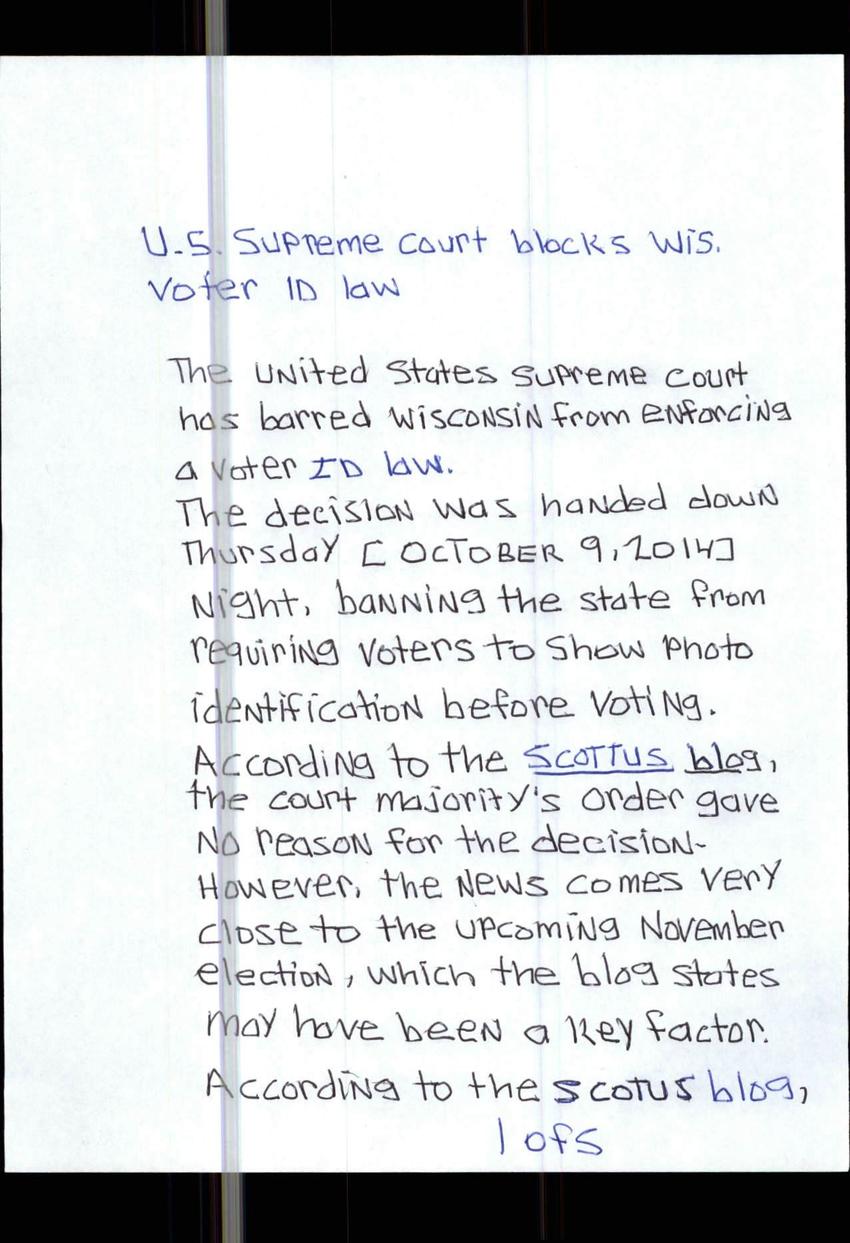 U.S. Supreme court blocks Wis.
Voter ID law
The United States Supreme court
has barred Wisconsin from enforcing
a voter ID law.
The decision was handed down
Thursday [OCTOBER 9, 2014]
Night, banning the state from
requiring voters to show photo
identification before voting.
According to the SCOTTUS blog,
the court majority's order gave
No reason for the decision-
However, the News comes very
close to the upcoming November
election, which the blog states
may have been a key factor.
According to the SCOTUS blog,
1 of 5